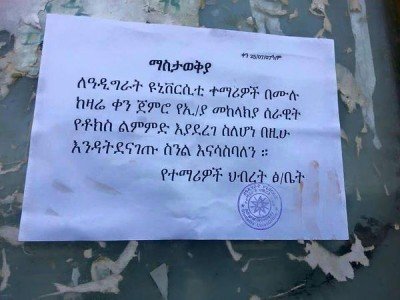 ማስታወቂያ
ለዓዲግራት ዩኒቨርሲቲ ተማሪዎች በሙሉ
ከዛሬ ቀን ጀምሮ የኢ/ያ መከላከያ ሰራዊት
የቶክስ ልምምድ እያደረገ ስለሆነ በዚሁ
እንዳትደናገጡ ስንል እናሳስባለን ።
የተማሪዎች ህብረት ፅ/ቤት